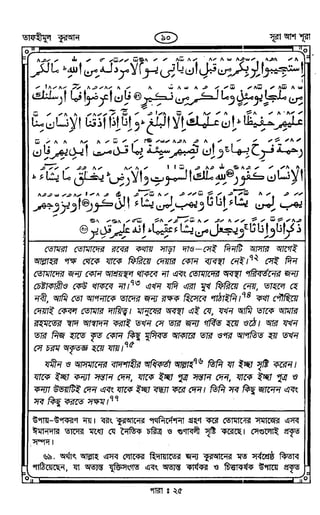 তাফহীমুল কুরআন
৯০
সূরা আশ শূরা
اِسْتَجِيْبُوْا لِرَبِّكُمْ مِّنْ قَبْلِ اَنْ يَّاْتِىَ يَوْمٌ لَّا مَرَدَّ لَهٗ مِنَ اللّٰهِ ؕ مَا لَكُمْ
مِّنْ مَّلْجَاٍ يَّوْمَئِذٍ وَّمَا لَكُمْ مِّنْ نَّكِيْرٍ ۝ فَاِنْ اَعْرَضُوْا فَمَاۤ اَرْسَلْنٰكَ
عَلَيْهِمْ حَفِيْظًا ؕ اِنْ عَلَيْكَ اِلَّا الْبَلٰغُ ؕ وَاِنَّاۤ اِذَاۤ اَذَقْنَا الْاِنْسَانَ مِنَّا
رَحْمَةً فَرِحَ بِهَا ۚ وَاِنْ تُصِبْهُمْ سَيِّئَةٌۢ بِمَا قَدَّمَتْ اَيْدِيْهِمْ فَاِنَّ
الْاِنْسَانَ كَفُوْرٌ ۝ لِلّٰهِ مُلْكُ السَّمٰوٰتِ وَالْاَرْضِ ؕ يَخْلُقُ مَا يَشَآءُ ؕ
يَهَبُ لِمَنْ يَّشَآءُ اِنَاثًا وَّيَهَبُ لِمَنْ يَّشَآءُ الذُّكُوْرَ ۝ اَوْ يُزَوِّجُهُمْ
ذُكْرَانًا وَّاِنَاثًا ۚ وَيَجْعَلُ مَنْ يَّشَآءُ عَقِيْمًا ؕ اِنَّهٗ عَلِيْمٌ قَدِيْرٌ ۝
তোমরা তোমাদের রবের কথায় সাড়া দাও—সেই দিনটি আসার আগেই
আল্লাহর পক্ষ থেকে যাকে ফিরিয়ে দেয়ার কোন ব্যবস্থা নেই।৭২ সেই দিন
তোমাদের জন্য কোন আশ্রয়স্থল থাকবে না এবং তোমাদের অবস্থা পরিবর্তনের জন্য
চেষ্টাকারীও কেউ থাকবে না।৭৩ এখন যদি এরা মুখ ফিরিয়ে নেয়, তাহলে হে
নবী, আমি তো আপনাকে তাদের জন্য রক্ষক হিসেবে পাঠাইনি।৭৪ কথা পৌছিয়ে
দেয়াই কেবল তোমার দায়িত্ব। মানুষের অবস্থা এই যে, যখন আমি তাকে আমার
রহমতের স্বাদ আস্বাদন করাই তখন সে তার জন্য গর্বিত হয়ে ওঠে। আর যখন
তার নিজ হাতে কৃত কোন কিছু মুসিবত আকারে তার ওপর আপতিত হয় তখন
সে চরম অকৃতজ্ঞ হয়ে যায়।৭৫
যমীন ও আসমানের বাদশাহীর অধিকর্তা আল্লাহ৭৬ তিনি যা ইচ্ছা সৃষ্টি করেন।
যাকে ইচ্ছা কন্যা সন্তান দেন, যাকে ইচ্ছা পুত্র সন্তান দেন, যাকে ইচ্ছা পুত্র ও
কন্যা উভয়টিই দেন এবং যাকে ইচ্ছা বন্ধ্যা করে দেন। তিনি সব কিছু জানেন এবং
সব কিছু করতে সক্ষম।৭৭
উপায়-উপকরণ নয়। বরং কুরআনের পথনির্দেশনা গ্রহণ করে তোমাদের সমাজের এসব
ঈমানদার তাদের মধ্যে যে নৈতিক চরিত্র ও গুণাবলী সৃষ্টি করেছে। সেগুলোই প্রকৃত
সম্পদ।
৬৯. অর্থাৎ আল্লাহ এসব লোকের হিদায়াতের জন্য কুরআনের মত সর্বশ্রেষ্ঠ কিতাব
পাঠিয়েছেন, যা অত্যন্ত যুক্তিসংগত এবং অত্যন্ত কার্যকর ও চিত্তাকর্ষক উপায়ে প্রকৃত
পারা : ২৫